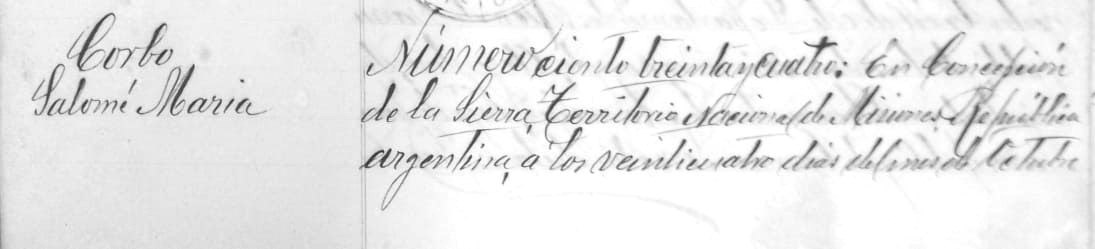 Corbo
Salomé Maria
Número ciento treinta y cuatro: En Concepción
de la Sierra, Territorio Nacional de Misiones, República
argentina, a los veinticuatro dias del mes de Octubre